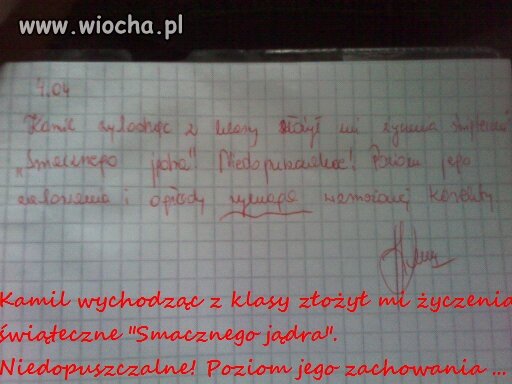 www.wiocha.pl
4.04
Kamil wychodząc z klasy złożył mi życzenia świąteczne
„Smacznego jądra"! Niedopuszczalne! Poziom jego
zachowania i ogłady wymaga wzmożonej kontroli
Kamil wychodząc z klasy złożył mi życzenia
świąteczne "Smacznego jądra".
Niedopuszczalne! Poziom jego zachowania ...